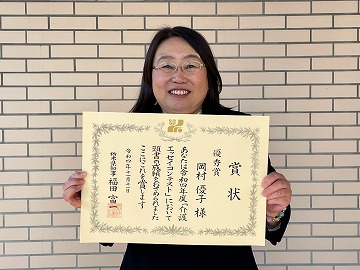 賞状
優秀賞
岡村優子様
あなたは令和四年度「介護
エッセイコンテスト」において
頭書の成績をおさめられました
ここにこれを賞します
令和四年十一月十一日
栃木県知事 福田富一